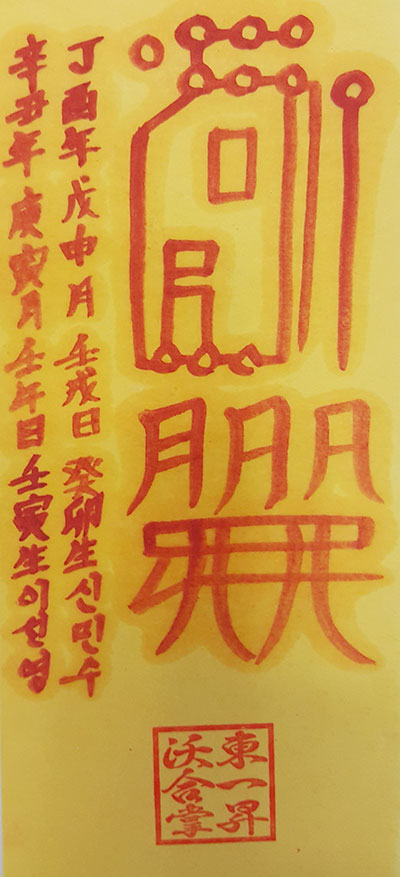 丁酉年 戊申月 壬戌日 癸卯生 신민수
辛丑年 庚寅月 壬午日 壬寅生 이선영
東一昇
沃合掌